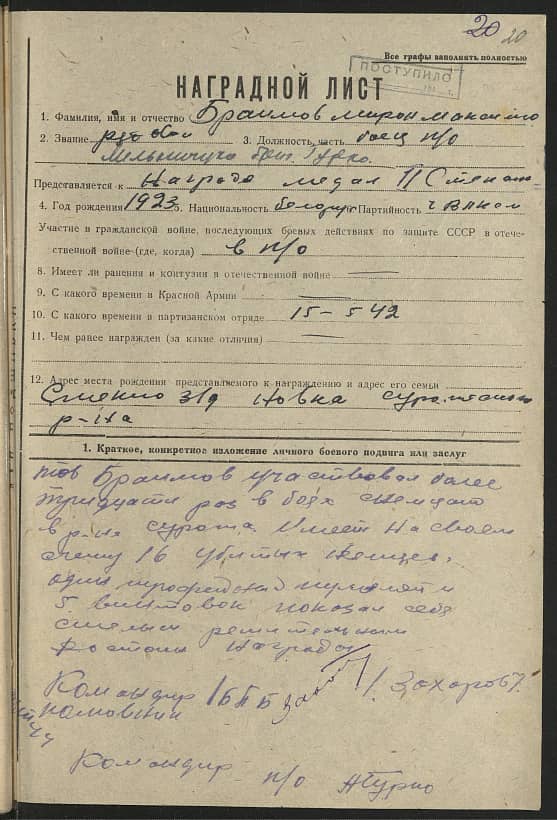 20 20
Все графы заполнять полностью
ПОСТУПИЛО
НАГРАДНОЙ ЛИСТ
1. Фамилия, имя и отчество Браимов Мирон
2. Звание рядовой 3. Должность, часть боец п/о
Представляется к Награде медал II Степени
4. Год рождения 1923 5. Национальность белорус Партийность
Участие в гражданской войне, последующих боевых действиях по защите СССР в отече-
ственной войне (где, когда) в п/о
8. Имеет ли ранения и контузия в отечественной войне
9. С какого времени в Красной Армии
10. С какого времени в партизанском отряде 15-5 42
11. Чем ранее награжден (за какие отличия)
12. Адрес места рождения представляемого к награждению и адрес его семьи
Новка
р-на
1. Краткое, конкретное изложение личного боевого подвига или заслуг
тов Браимов участвовал более
тридцати раз в боях
в р-не Суража Имеет на своем
счету 16 убитых немцев,
один трофейный
5 винтовок показал себя
смелым решительным
Достоин Награды
Командир 1 ББПБ Захаров
Командир п/о